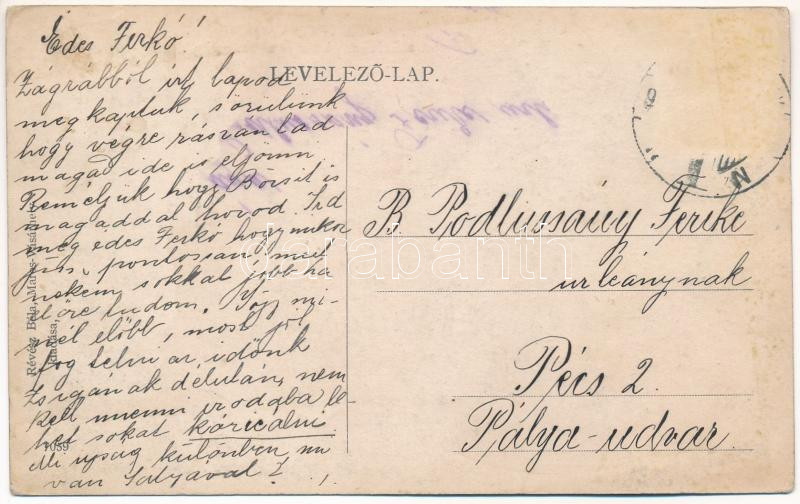 Édes Ferkó!
Zágrábból írt lapod
megkaptuk, s örülünk
hogy végre rászántad
magad ide is eljönni
Reméljük hogy Börsit is
magaddal hozod. Írd
meg édes Ferkó hogy mikor
jösz, pontosan, mert
nekem sokkal jobb ha
előre tudom. Jőjj mi-
nél előbb, most jól
fog telni az időnk
Zsiganak délután nem
kell menni irodába le-
het sokat káricálni
Mi ujság különben, mi
van Sátyával?
LEVELEZŐ-LAP.
Révész Béla, Maros-Vásárhely
kiadása,
7059
B Podlussány Ferike
urleánynak
Pécs 2.
Pálya-udvar.
darabanth